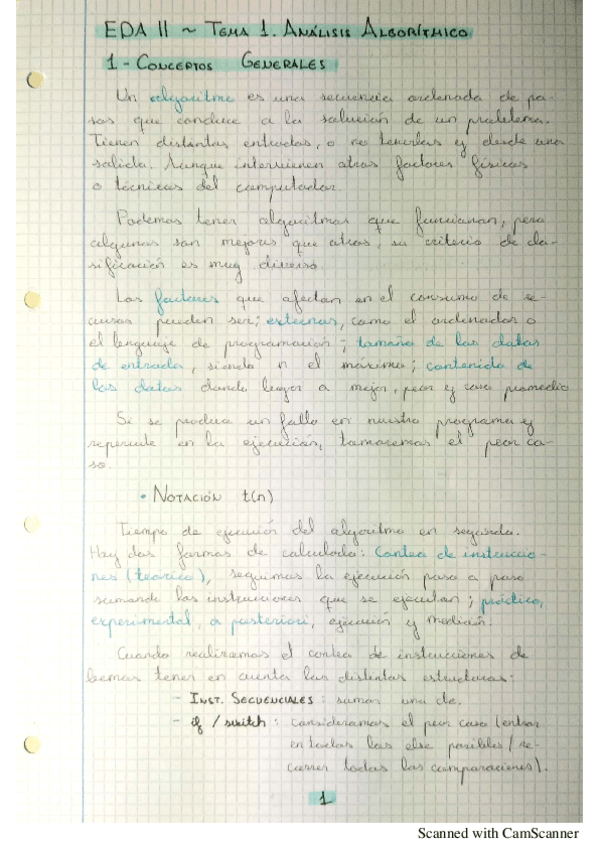 EDA II ~ TEMA 1. ANÁLISIS ALGORÍTMICO
1 - CONCEPTOS GENERALES
Un algoritmo es una secuencia ordenada de pa-
sos que conduce a la solución de un problema.
Tienen distintas entradas, o no tenerlas y desde una
salida. Aunque intervienen otros factores físicos
o técnicos del computador.
Podemos tener algoritmos que funcionan, pero
algunos son mejores que otros, su criterio de cla-
sificación es muy diverso.
Los factores que afectan en el consumo de re-
cursos pueden ser; externos, como el ordenador o
el lenguaje de programación; tamaño de los datos
de entrada, siendo n el máximo; contenido de
los datos dando lugar a mejor, peor y caso promedio.
Si se produce un fallo en nuestro programa y
repercute en la ejecución, tomaremos el peor ca-
so.
• NOTACIÓN t(n)
Tiempo de ejecución del algoritmo en segundos.
Hay dos formas de calcularlo: Conteo de instruccio-
nes (teórico), seguimos la ejecución paso a paso
sumando las instrucciones que se ejecutan; práctico,
experimental, a posteriori, ejecución y medición.
Cuando realizamos el conteo de instrucciones de
bemos tener en cuenta las distintas estructuras:
- INST. SECUENCIALES: suman una cte.
- if / switch: consideramos el peor caso (entrar
en todos los else posibles / re-
correr todas las comparaciones).
1
Scanned with CamScanner